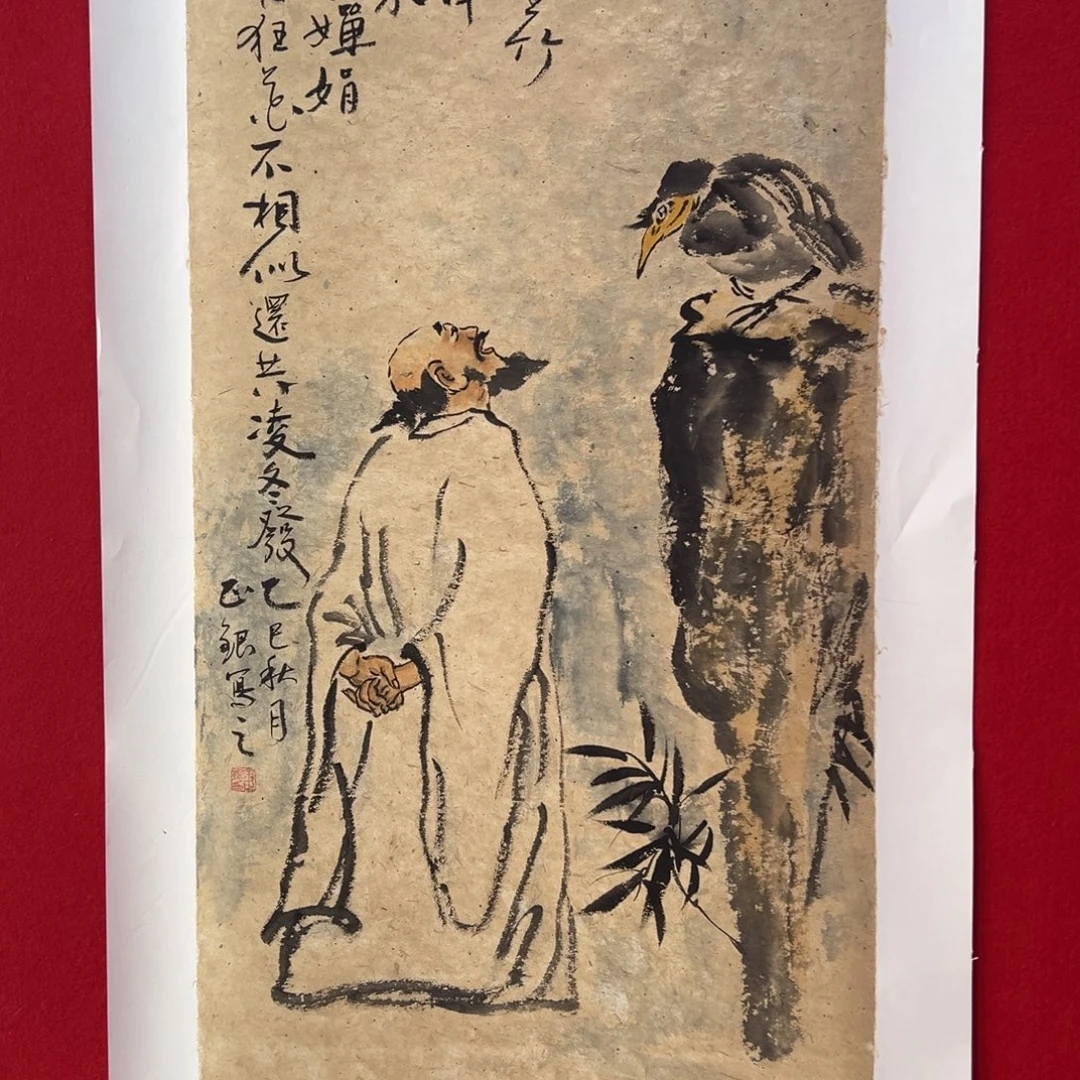 竹
嬋娟
狂花不相似還共凌冬發
乙巳秋月
正銀寫之